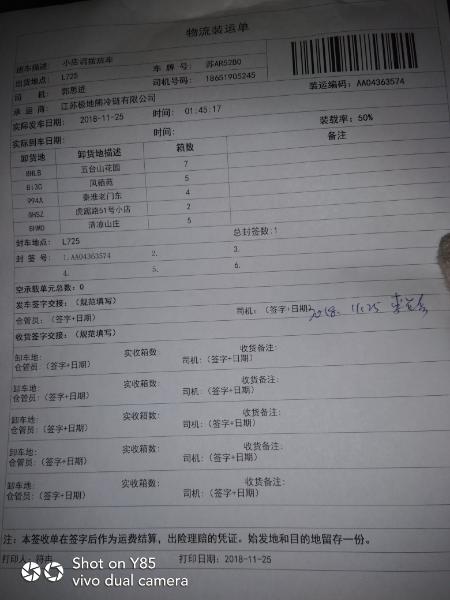 物流装运单
班车描述: 小店调拨班车
车 牌 号: 苏AR52B0
出货地点: L725
司机号码: 18651905245
司 机: 郭思进
装运编码: AA04363574
承 运 商: 江苏极地熊冷链有限公司
实际发车日期: 2018-11-25 时间: 01:45:17
装载率: 50%
实际到车日期: 时间:
卸货地 卸货地描述 箱数 备注
8HLB 五台山花园 7
8i3C 凤栖苑 5
994A 秦淮老门东 4
8HSZ 虎踞路51号小店 2
8HWD 清凉山庄 5
封车地点: L725 总封签数:1
封 签 号: 1.AA04363574 2. 3.
4. 5. 6.
空承载单元总数: 0
发车签字交接: (规范填写)
仓管员: (签字+日期) 司机: (签字+日期) 2018. 11.25
收货签字交接: (规范填写)
卸车地: 实收箱数: 收货备注:
仓管员: (签字+日期) 司机: (签字+日期)
卸车地: 实收箱数: 收货备注:
仓管员: (签字+日期) 司机: (签字+日期)
卸车地: 实收箱数: 收货备注:
仓管员: (签字+日期) 司机: (签字+日期)
卸车地: 实收箱数: 收货备注:
仓管员: (签字+日期) 司机: (签字+日期)
卸车地: 实收箱数: 收货备注:
仓管员: (签字+日期) 司机: (签字+日期)
注: 本签收单在签字后作为运费结算, 出险理赔的凭证。始发地和目的地留存一份。
打印人: 打印日期: 2018-11-25
Shot on Y85
vivo dual camera